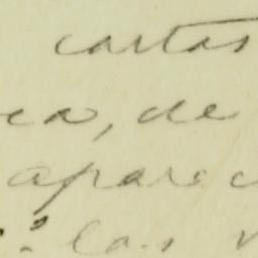 cartas
ca, de
aparec
las